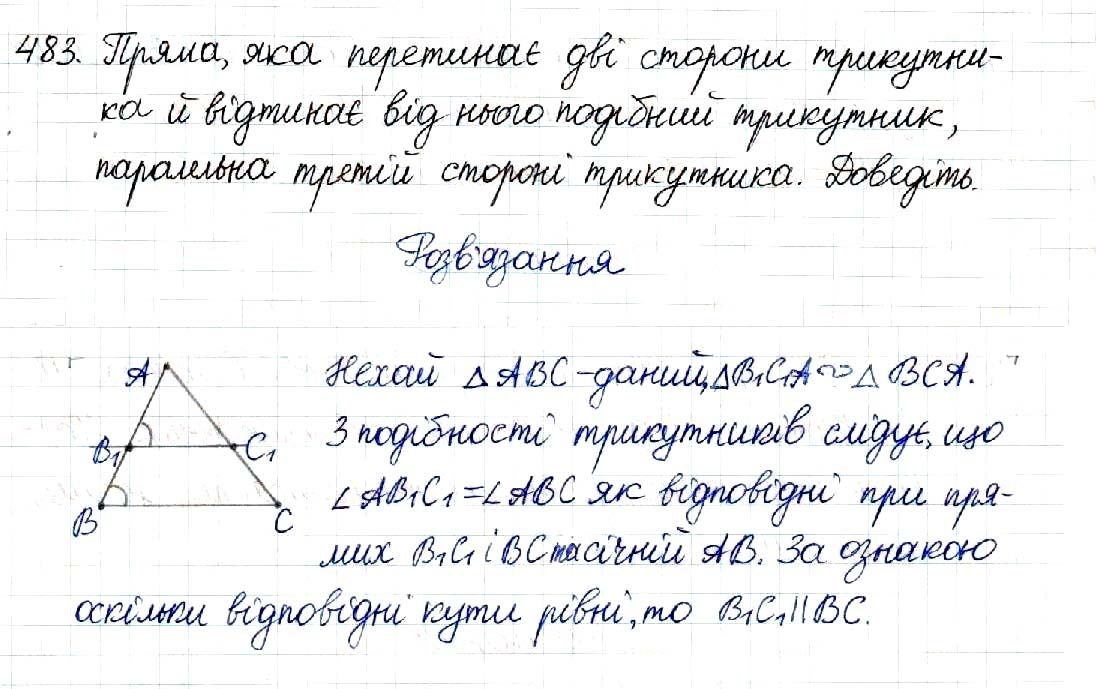 483. Пряма, яка перетинає дві сторони трикутни-
ка й відтинає від нього подібний трикутник,
паралельна третій стороні трикутника. Доведіть.
Розв'язання
A
B₁
C₁
B
C
Нехай △ABC - даний, △B₁C₁A ∾ △BCA.
З подібності трикутників слідує, що
∠AB₁C₁ = ∠ABC як відповідні при пря-
мих B₁C₁ і BC та січній AB. За ознакою
оскільки відповідні кути рівні, то B₁C₁ || BC.